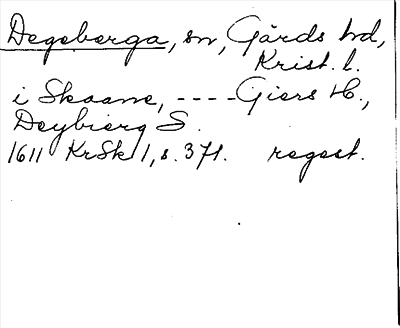 Degeberga, sn, Gärds hd,
Krist. l.
i Skaane, ---- Giers H.,
Deybierg S.
1611 KrSk 1, s. 371. regest.